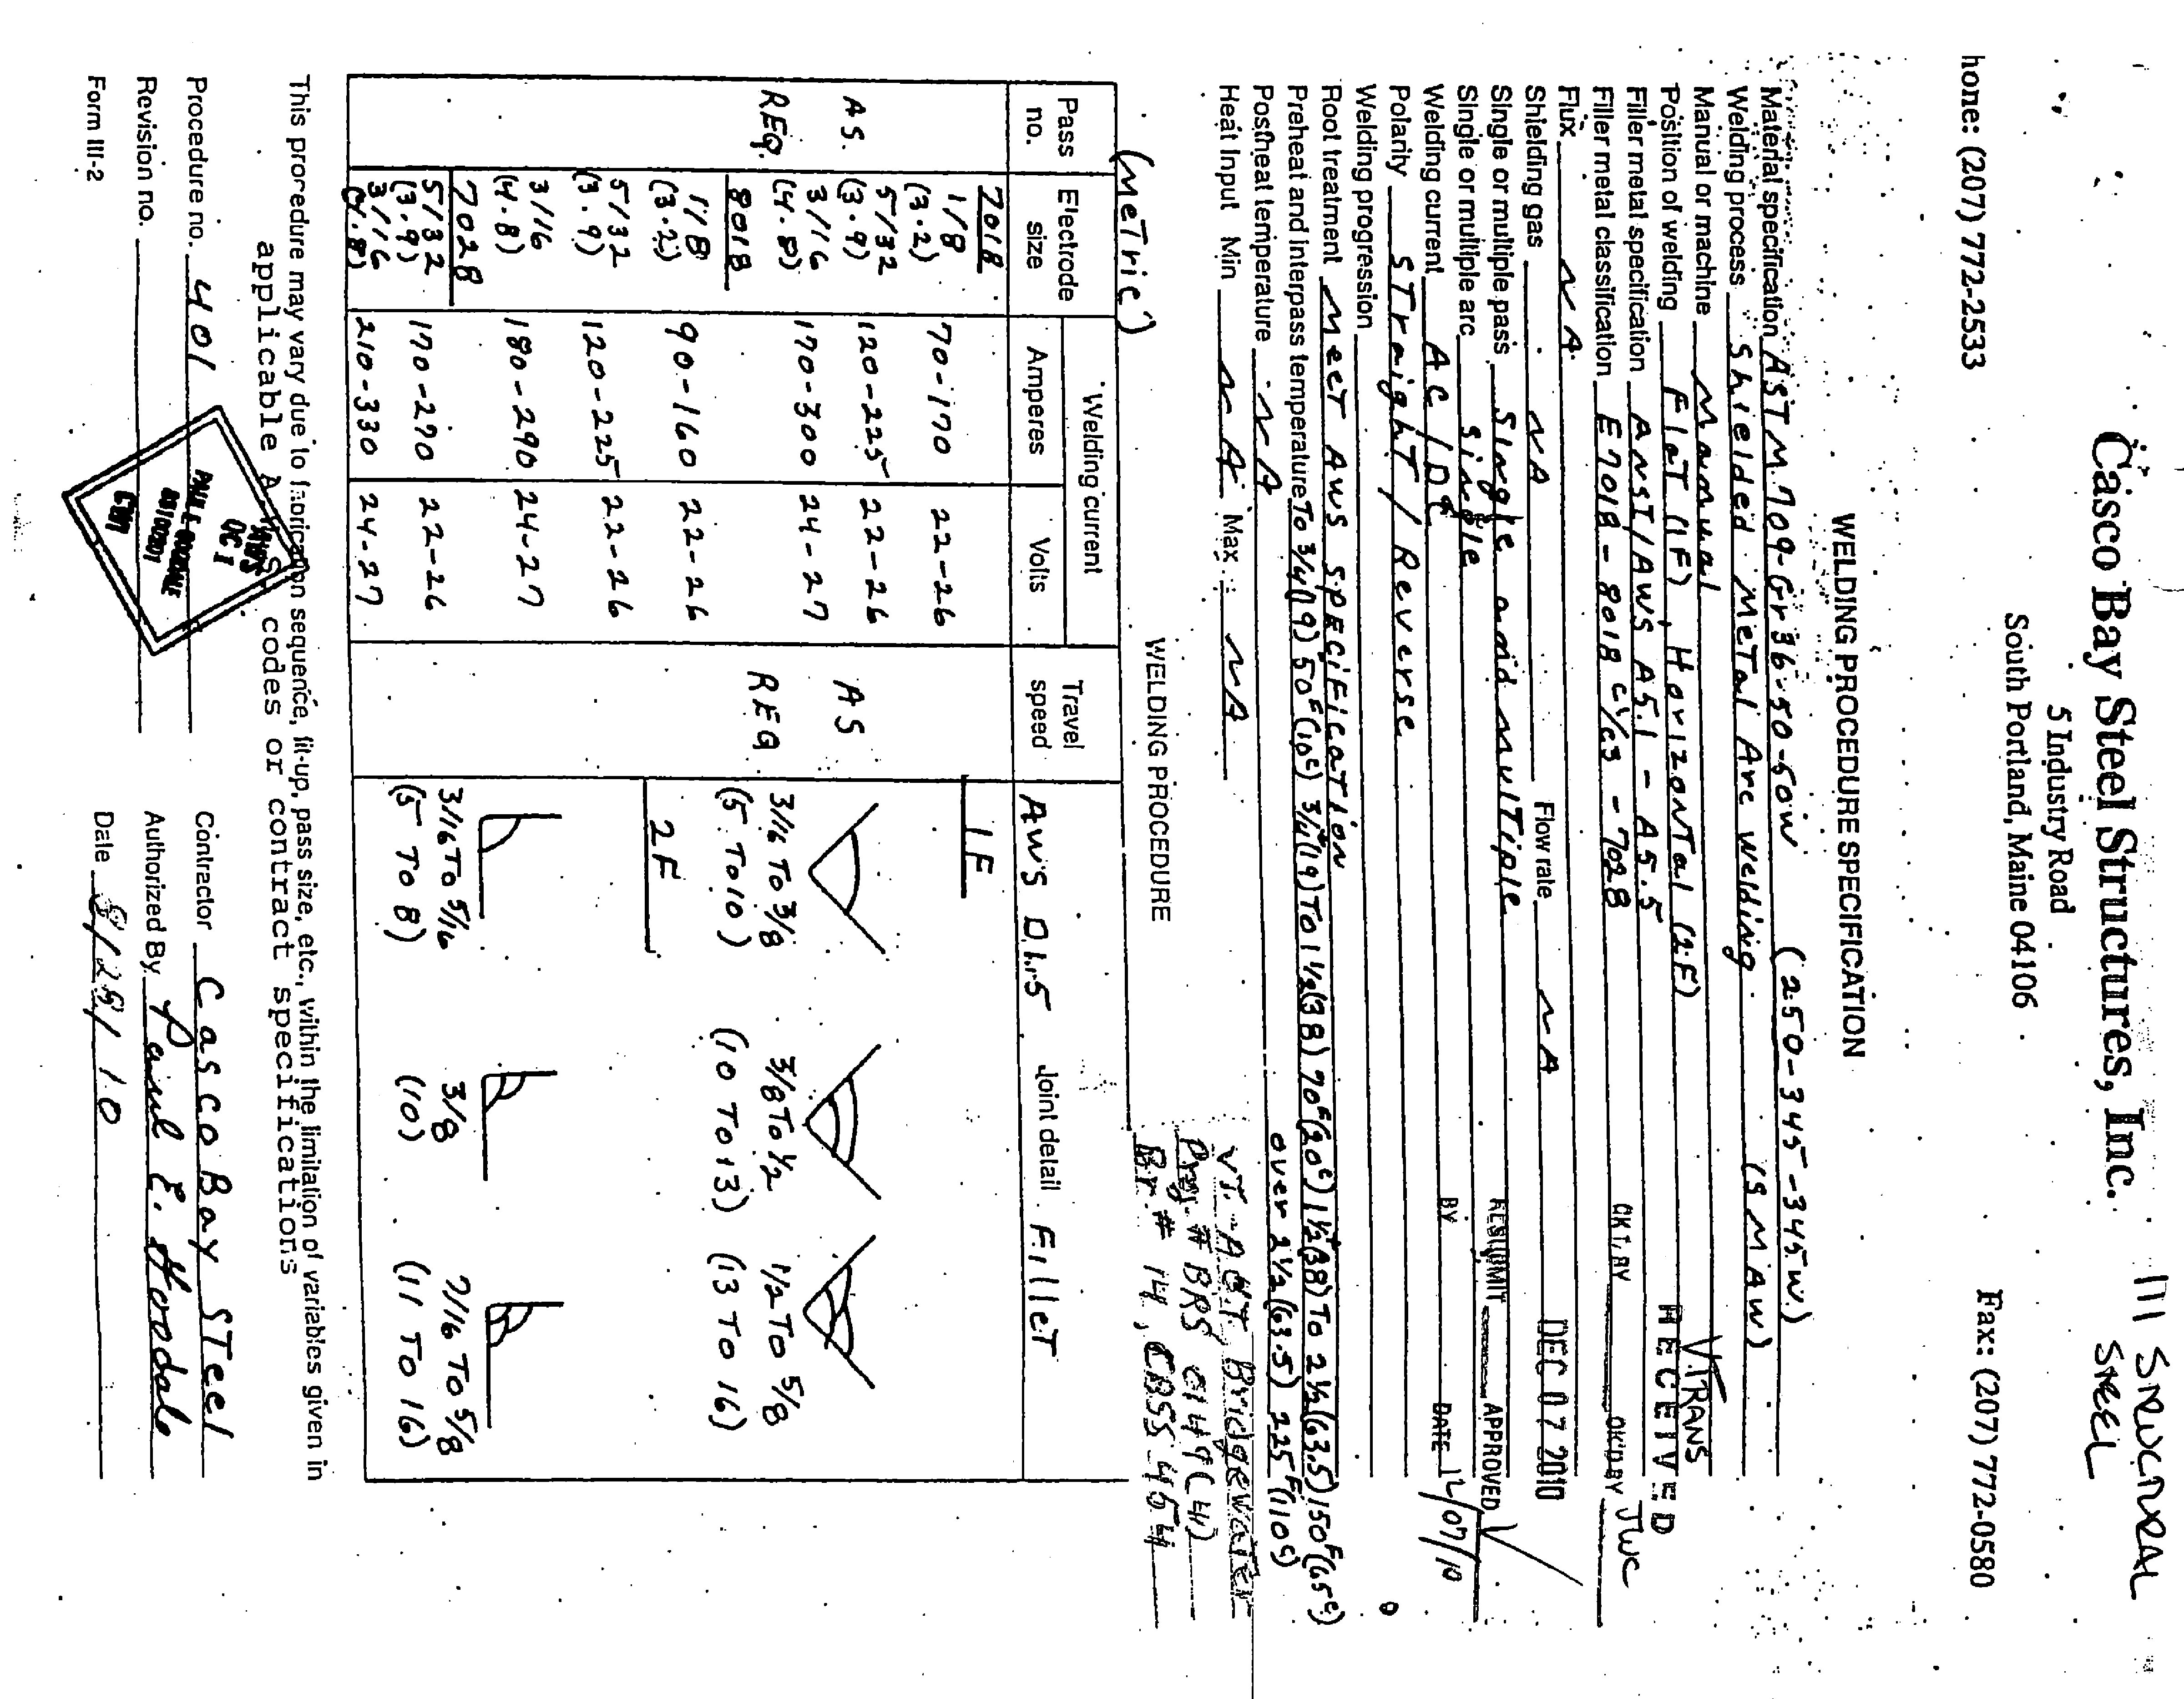 Casco Bay Steel Structures, Inc.
111 STRUCTURAL
STEEL
5 Industry Road
South Portland, Maine 04106
hone: (207) 772-2533 Fax: (207) 772-0580
WELDING PROCEDURE SPECIFICATION
Material specification ASTM 709-Gr36-50-50W (250-345-345W)
Welding process Shielded Metal Arc Welding (SMAW)
Manual or machine Manual
VTRANS
Position of welding Flat (1F), Horizontal (2F)
RECEIVED
Filler metal specification ANSI/AWS A5.1 - A5.5
Filler metal classification E7018 - 8018 C1/C3 - 7028
CK'D BY OK'D BY JWC
Flux NA
Shielding gas NA Flow rate NA
DEC 07 2010
Single or multiple pass Single and Multiple
RESUBMIT APPROVED ✓
Single or multiple arc Single
BY DATE 12/07/10
Welding current AC/DC
Polarity Straight / Reverse
Welding progression
Root treatment Meet AWS Specification
Preheat and interpass temperature To 3/4(19) 50F(10C) 3/4(19) To 1 1/2(38) 70F(20C) 1 1/2(38) To 2 1/2(63.5) 150F(65C)
over 2 1/2(63.5) 225F(110C)
Postheat temperature NA
Heat Input Min NA Max: NA
VT. A.O.T. Bridgewater
Proj. # BRS 0149(4)
Br. # 14, CBSS-454
WELDING PROCEDURE
(Metric)
Pass no. Electrode size Welding current Amperes Volts Travel speed AWS D1.5 Joint detail Fillet
AS. REQ.
AS REQ
7018
1/8 (3.2) 70-170 22-26
5/32 (3.9) 120-225 22-26
3/16 (4.8) 170-300 24-27
8018
1/8 (3.2) 90-160 22-26
5/32 (3.9) 120-225 22-26
3/16 (4.8) 180-290 24-27
7028
5/32 (3.9) 170-290 22-26
3/16 (4.8) 210-330 24-27
1F
3/16 To 3/8 3/8 To 1/2 1/2 To 5/8
(5 To 10) (10 To 13) (13 To 16)
2F
3/16 To 5/16 3/8 7/16 To 5/8
(5 To 8) (10) (11 To 16)
This procedure may vary due to fabrication sequence, fit-up, pass size, etc., within the limitation of variables given in
applicable A.W.S. codes or contract specifications
Procedure no. 401 Contractor Casco Bay Steel
Revision no. Authorized By Paul E.
Form III-2 Date
QC1
CWI